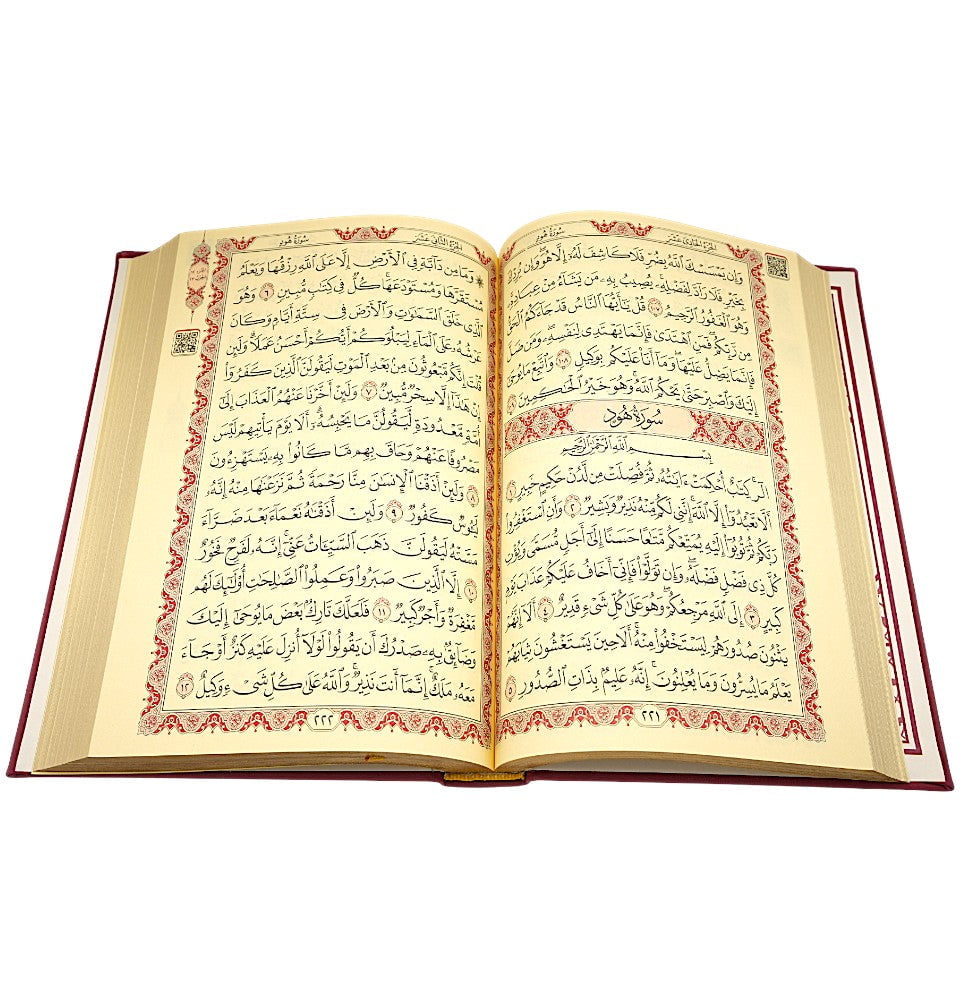 الجزء الحادي عشر
سورة هود
وَإِن يَمْسَسْكَ ٱللَّهُ بِضُرٍّ فَلَا كَاشِفَ لَهُۥٓ إِلَّا هُوَ وَإِن يُرِدْكَ
بِخَيْرٍ فَلَا رَآدَّ لِفَضْلِهِۦ يُصِيبُ بِهِۦ مَن يَشَآءُ مِنْ عِبَادِهِۦ
وَهُوَ ٱلْغَفُورُ ٱلرَّحِيمُ ١٠٧ قُلْ يَٰٓأَيُّهَا ٱلنَّاسُ قَدْ جَآءَكُمُ ٱلْحَقُّ
مِن رَّبِّكُمْ فَمَنِ ٱهْتَدَىٰ فَإِنَّمَا يَهْتَدِى لِنَفْسِهِۦ وَمَن ضَلَّ
فَإِنَّمَا يَضِلُّ عَلَيْهَا وَمَآ أَنَا۠ عَلَيْكُم بِوَكِيلٍ ١٠٨ وَٱتَّبِعْ مَا يُوحَىٰٓ
إِلَيْكَ وَٱصْبِرْ حَتَّىٰ يَحْكُمَ ٱللَّهُ وَهُوَ خَيْرُ ٱلْحَٰكِمِينَ
سُورَةُ هُودٍ
بِسْمِ ٱللَّهِ ٱلرَّحْمَٰنِ ٱلرَّحِيمِ
الٓر كِتَٰبٌ أُحْكِمَتْ ءَايَٰتُهُۥ ثُمَّ فُصِّلَتْ مِن لَّدُنْ حَكِيمٍ خَبِيرٍ ١
أَلَّا تَعْبُدُوٓا۟ إِلَّا ٱللَّهَ إِنَّنِى لَكُم مِّنْهُ نَذِيرٌ وَبَشِيرٌ ٢ وَأَنِ ٱسْتَغْفِرُوا۟
رَبَّكُمْ ثُمَّ تُوبُوٓا۟ إِلَيْهِ يُمَتِّعْكُم مَّتَٰعًا حَسَنًا إِلَىٰٓ أَجَلٍ مُّسَمًّى وَيُؤْتِ
كُلَّ ذِى فَضْلٍ فَضْلَهُۥ وَإِن تَوَلَّوْا۟ فَإِنِّىٓ أَخَافُ عَلَيْكُمْ عَذَابَ يَوْمٍ
كَبِيرٍ ٣ إِلَى ٱللَّهِ مَرْجِعُكُمْ وَهُوَ عَلَىٰ كُلِّ شَىْءٍ قَدِيرٌ ٤ أَلَآ إِنَّهُمْ
يَثْنُونَ صُدُورَهُمْ لِيَسْتَخْفُوا۟ مِنْهُ أَلَا حِينَ يَسْتَغْشُونَ ثِيَابَهُمْ
يَعْلَمُ مَا يُسِرُّونَ وَمَا يُعْلِنُونَ إِنَّهُۥ عَلِيمٌۢ بِذَاتِ ٱلصُّدُورِ ٥
٢٢١
الجزء الثاني عشر
سورة هود
وَمَا مِن دَآبَّةٍ فِى ٱلْأَرْضِ إِلَّا عَلَى ٱللَّهِ رِزْقُهَا وَيَعْلَمُ
مُسْتَقَرَّهَا وَمُسْتَوْدَعَهَا كُلٌّ فِى كِتَٰبٍ مُّبِينٍ ٦ وَهُوَ
ٱلَّذِى خَلَقَ ٱلسَّمَٰوَٰتِ وَٱلْأَرْضَ فِى سِتَّةِ أَيَّامٍ وَكَانَ
عَرْشُهُۥ عَلَى ٱلْمَآءِ لِيَبْلُوَكُمْ أَيُّكُمْ أَحْسَنُ عَمَلًا وَلَئِن
قُلْتَ إِنَّكُم مَّبْعُوثُونَ مِنۢ بَعْدِ ٱلْمَوْتِ لَيَقُولَنَّ ٱلَّذِينَ كَفَرُوٓا۟
إِنْ هَٰذَآ إِلَّا سِحْرٌ مُّبِينٌ ٧ وَلَئِنْ أَخَّرْنَا عَنْهُمُ ٱلْعَذَابَ إِلَىٰٓ
أُمَّةٍ مَّعْدُودَةٍ لَّيَقُولُنَّ مَا يَحْبِسُهُۥٓ أَلَا يَوْمَ يَأْتِيهِمْ لَيْسَ
مَصْرُوفًا عَنْهُمْ وَحَاقَ بِهِم مَّا كَانُوا۟ بِهِۦ يَسْتَهْزِءُونَ
٨ وَلَئِنْ أَذَقْنَا ٱلْإِنسَٰنَ مِنَّا رَحْمَةً ثُمَّ نَزَعْنَٰهَا مِنْهُ إِنَّهُۥ
لَيَـُٔوسٌ كَفُورٌ ٩ وَلَئِنْ أَذَقْنَٰهُ نَعْمَآءَ بَعْدَ ضَرَّآءَ
مَسَّتْهُ لَيَقُولَنَّ ذَهَبَ ٱلسَّيِّـَٔاتُ عَنِّىٓ إِنَّهُۥ لَفَرِحٌ فَخُورٌ
١٠ إِلَّا ٱلَّذِينَ صَبَرُوا۟ وَعَمِلُوا۟ ٱلصَّٰلِحَٰتِ أُو۟لَٰٓئِكَ لَهُم
مَّغْفِرَةٌ وَأَجْرٌ كَبِيرٌ ١١ فَلَعَلَّكَ تَارِكٌۢ بَعْضَ مَا يُوحَىٰٓ إِلَيْكَ
وَضَآئِقٌۢ بِهِۦ صَدْرُكَ أَن يَقُولُوا۟ لَوْلَآ أُنزِلَ عَلَيْهِ كَنزٌ أَوْ جَآءَ
مَعَهُۥ مَلَكٌ إِنَّمَآ أَنتَ نَذِيرٌ وَٱللَّهُ عَلَىٰ كُلِّ شَىْءٍ وَكِيلٌ ١٢
٢٢٢